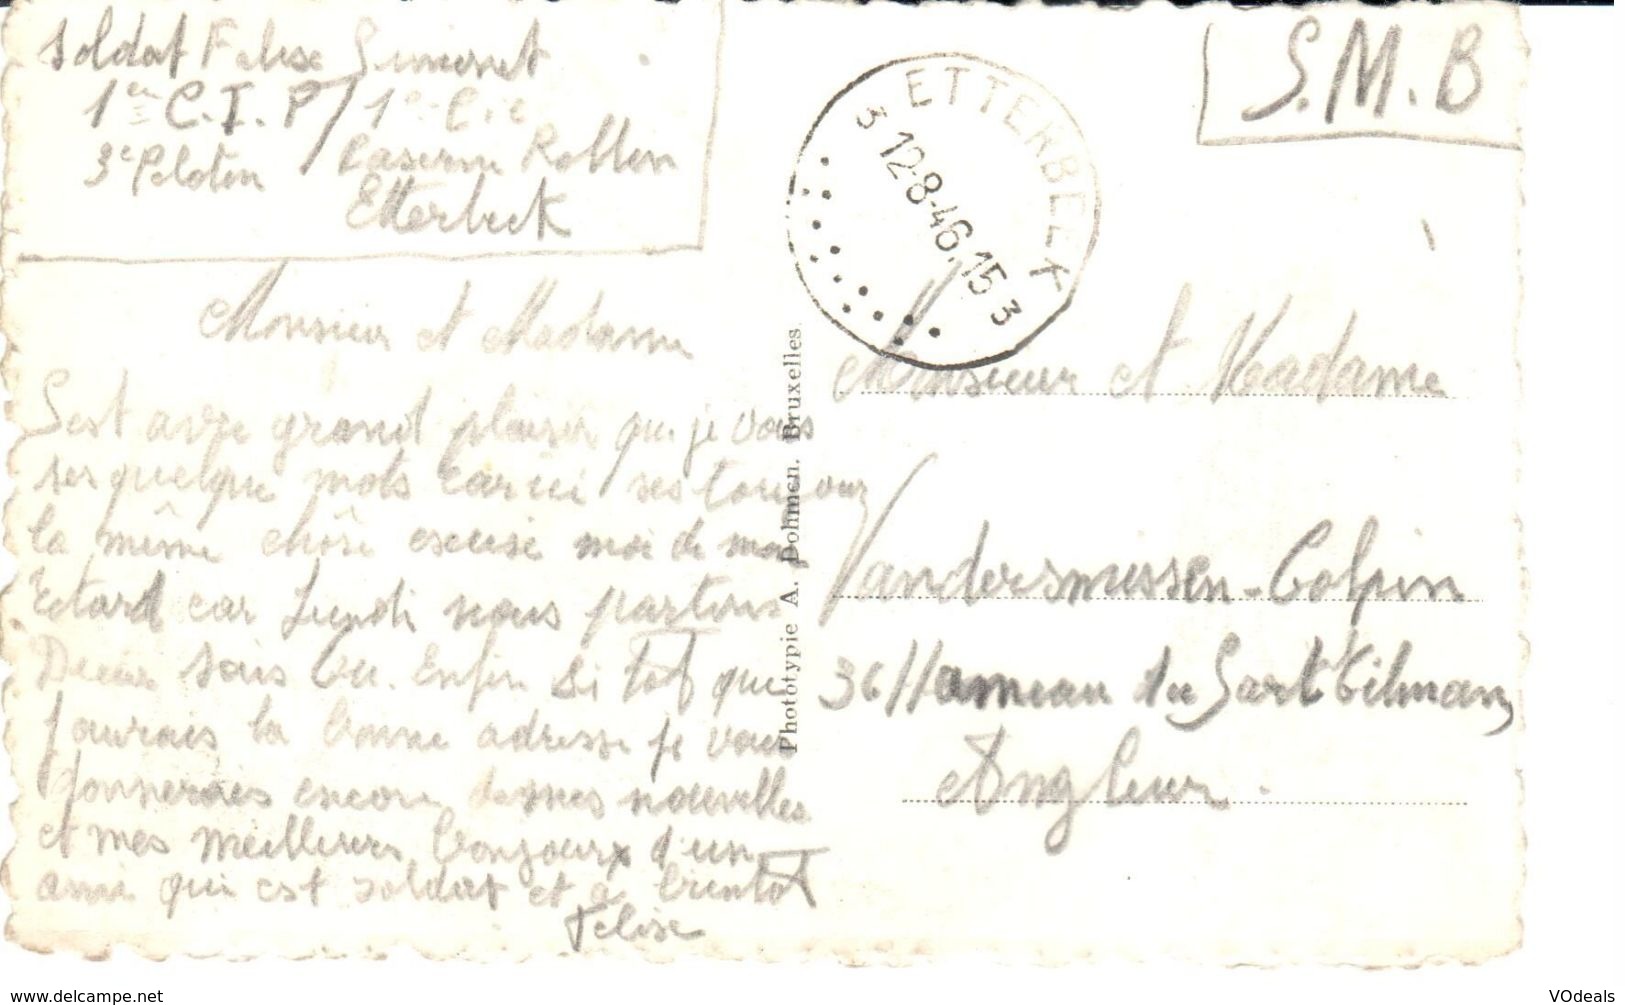 Soldat Felise Simonet
1er C.I.P / 1e Cie
3e Peloton Caserne Rollen
Etterbeek
S.M.B
ETTERBEEK
3 12-8-46.15 3
Monsieur et Madame
Sest avec grand plaisir que je vous
ses quelque mots car ici ses toujour
la même chôse excuse moi de mon
Retard car Lundi nous partons
sais ou. Enfin Si tot que
j'aurais la bonne adresse je vous
donnerais encore de mes nouvelles
et mes meilleurs bonjours d'un
ami qui est soldat et a bientot
Felise
Phototypie A. Dohmen. Bruxelles.
Monsieur et Madame
Vandersmissen-Colpin
36 Hameau du Sart Tilman
Angleur.
www.delcampe.net
VOdeals